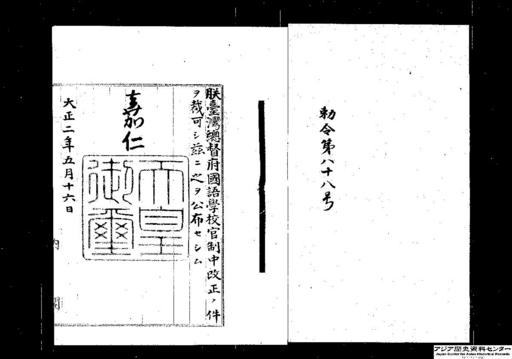 勅令第八十八号
朕臺灣總督府國語學校官制中改正ノ件
ヲ裁可シ茲ニ之ヲ公布セシム
嘉仁
天皇
御璽
大正二年五月十六日
内閣
アジア歴史資料センター
Japan Center for Asian Historical Records